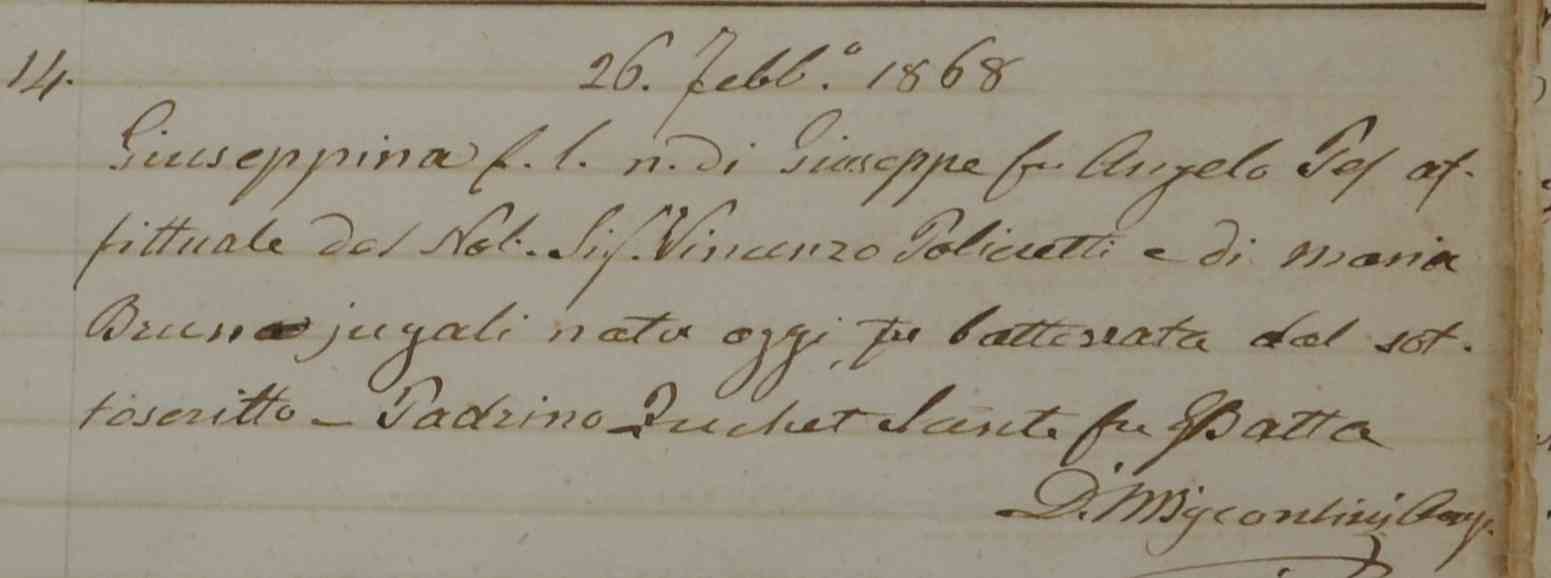 14.
26. Febb.º 1868
Giuseppina f. l. n. di Giuseppe fu Angelo Pes af-
fittuale del Nob. Sig. Vincenzo Policretti e di Maria
Bruna jugali nata oggi, fu battezzata dal sot-
toscritto – Padrino Zuchet Sante fu GBatta
D.